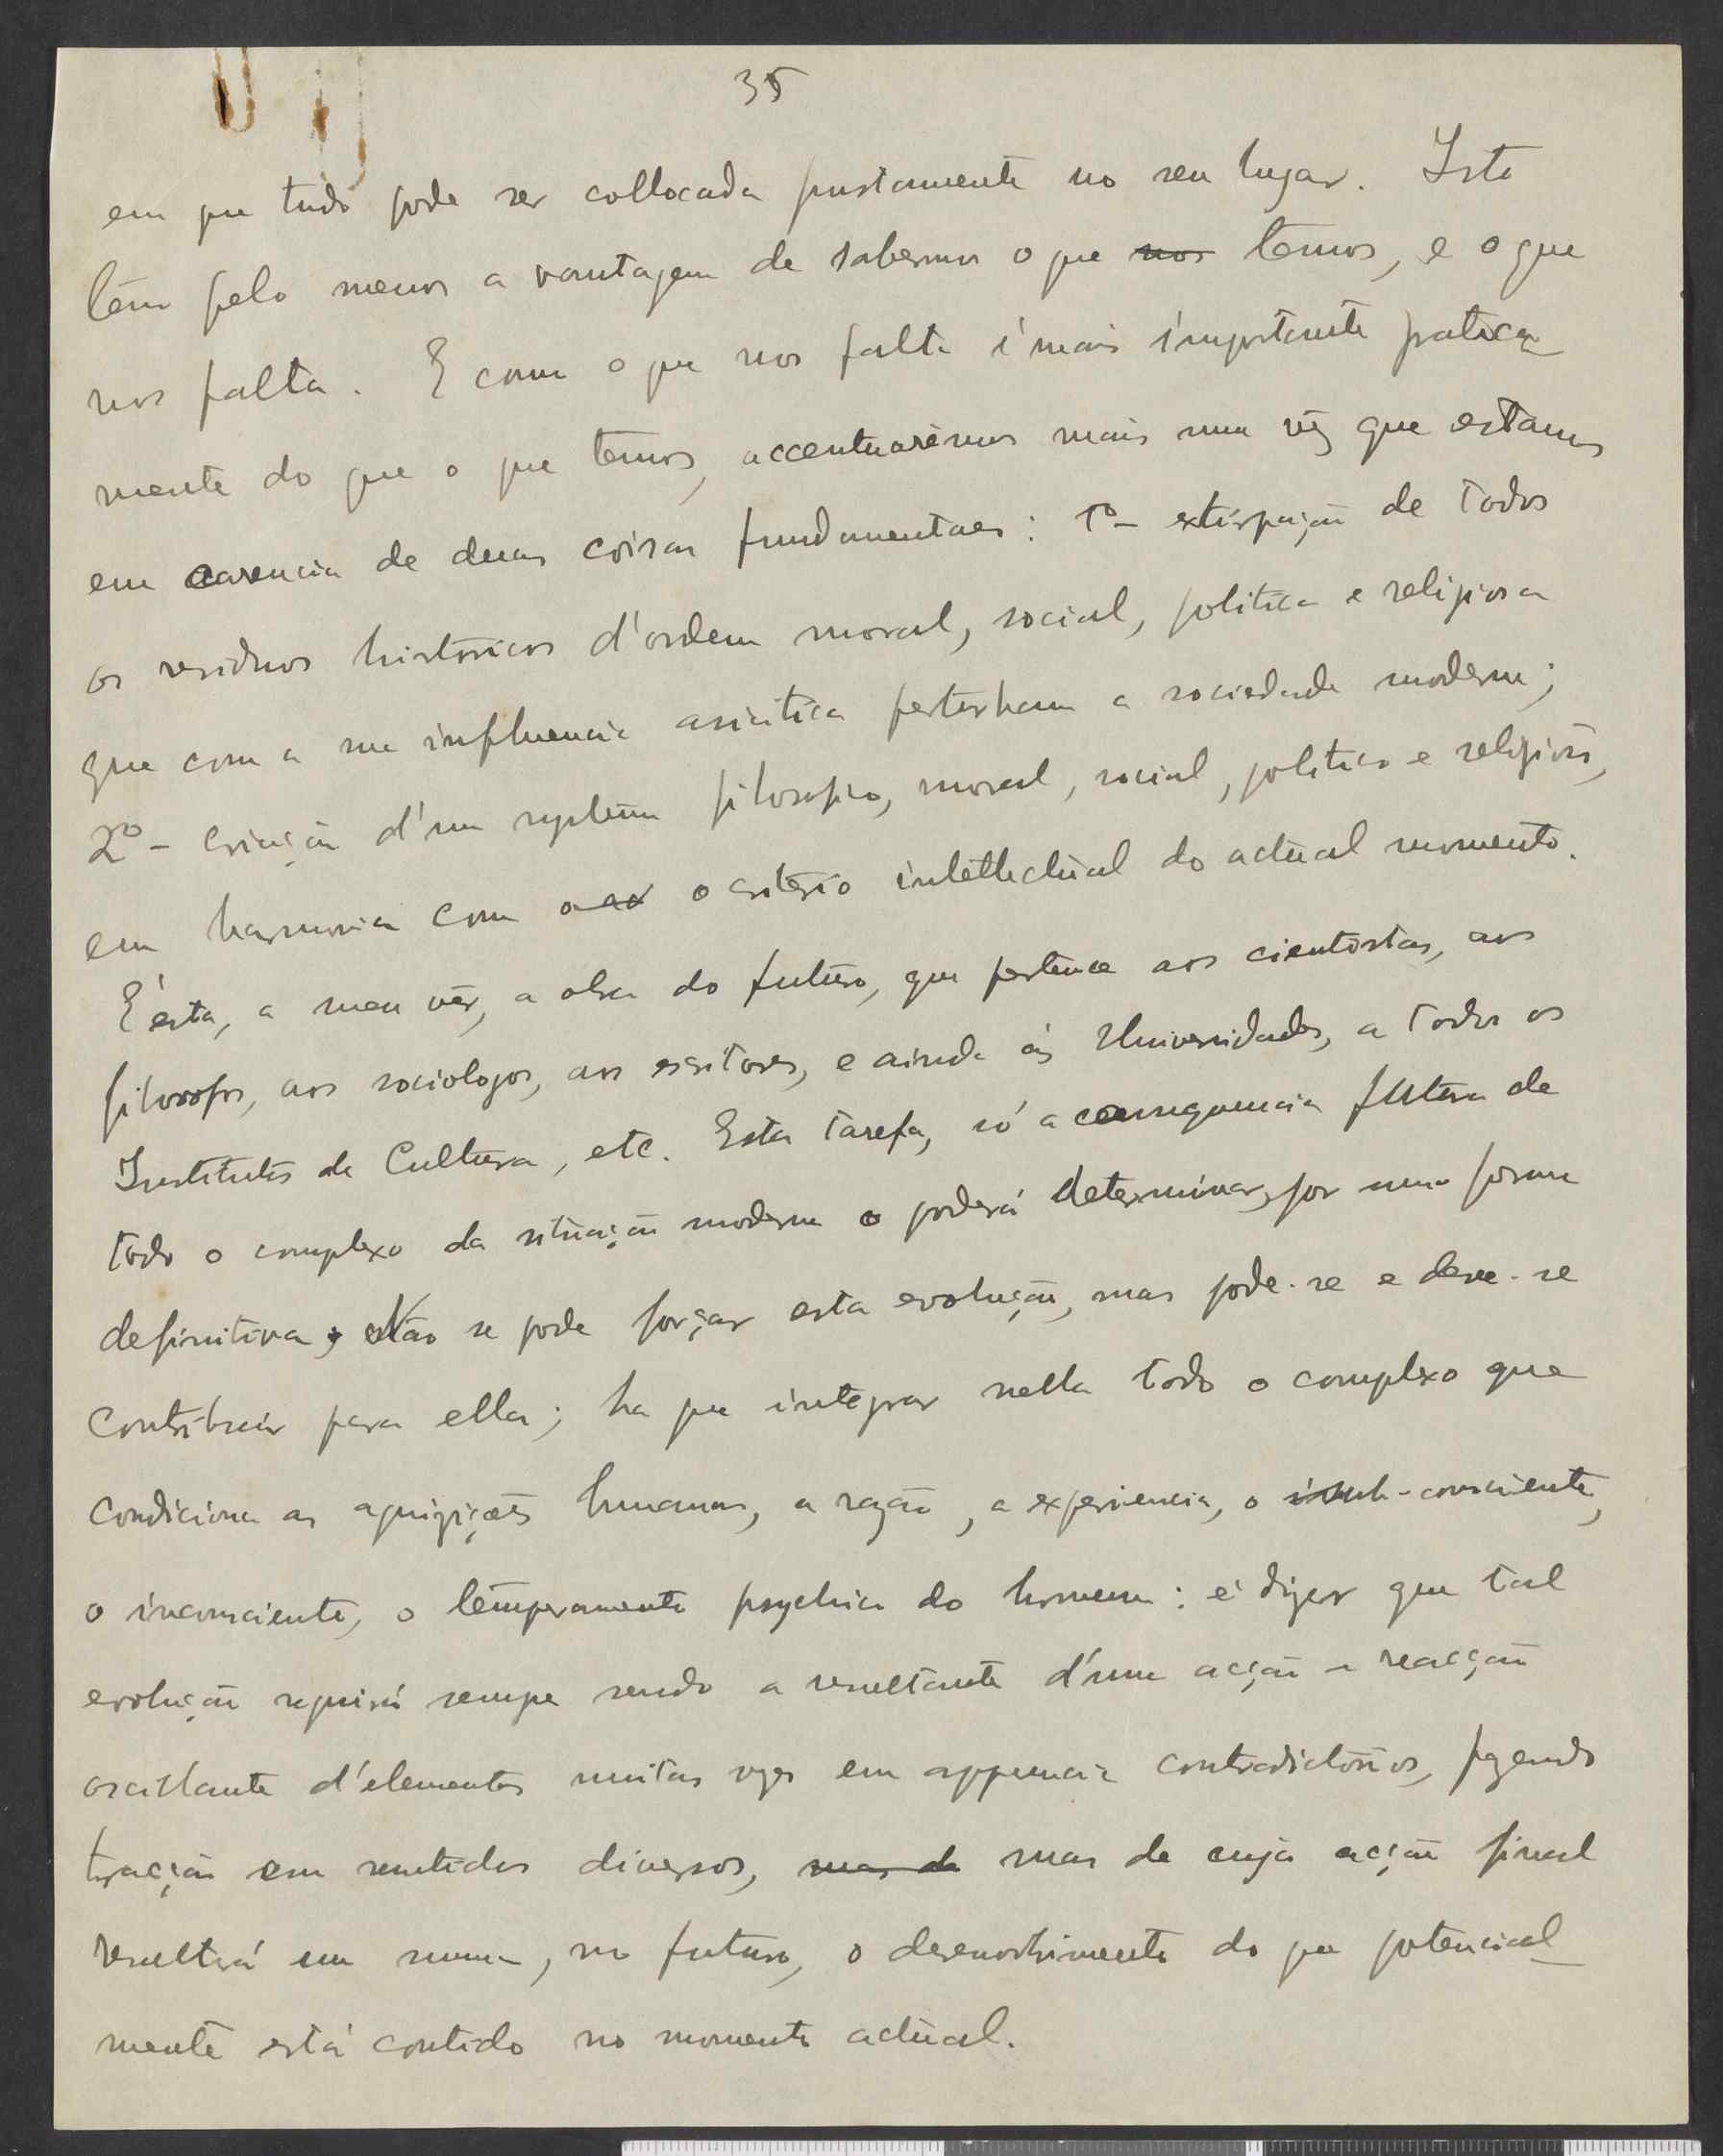 35
em que tudo pode ser collocada justamente no seu lugar. Isto
têm pelo menos a vantagem de sabermos o que nos temos, e o que
nos falta. E como o que nos falta é mais importante pratica-
mente do que o que temos, accentuarêmos mais uma vêz que estamos
em carencia de duas coisas fundamentaes: 1º - extirpação de todos
os residuos historicos d'ordem moral, social, politica e religiosa
que com a sua influencia asiatica perturbam a sociedade moderna;
2º - criação d'um systema filosofico, moral, social, politico e religioso,
em harmonia com o criterio intellectual do actual momento.
É esta, a meu vêr, a obra do futuro, que pertence aos cientistas, aos
filosofos, aos sociologos, aos escritores, e ainda ás Universidades, a todos os
Institutos de Cultura, etc. Esta tarefa, só a consequencia futura de
todo o complexo da situação moderna o poderá determinar, por uma forma
definitiva; Não se pode forçar esta evolução, mas pode-se e deve-se
contribuir para ella; ha que integrar nella todo o complexo que
condiciona as aquizições humanas, a razão, a experiencia, o sub-consciente,
o inconsciente, o temperamento psychico do homem: é dizer que tal
evolução seguirá sempre sendo a resultante d'uma acção e reacção
oscillante d'elementos muitas vezes em apparencia contradictorios, fazendo
tracção em sentidos diversos, mas de mas de cuja acção final
resultará em summa, no futuro, o desenvolvimento do que potencial-
mente está contido no momento actual.